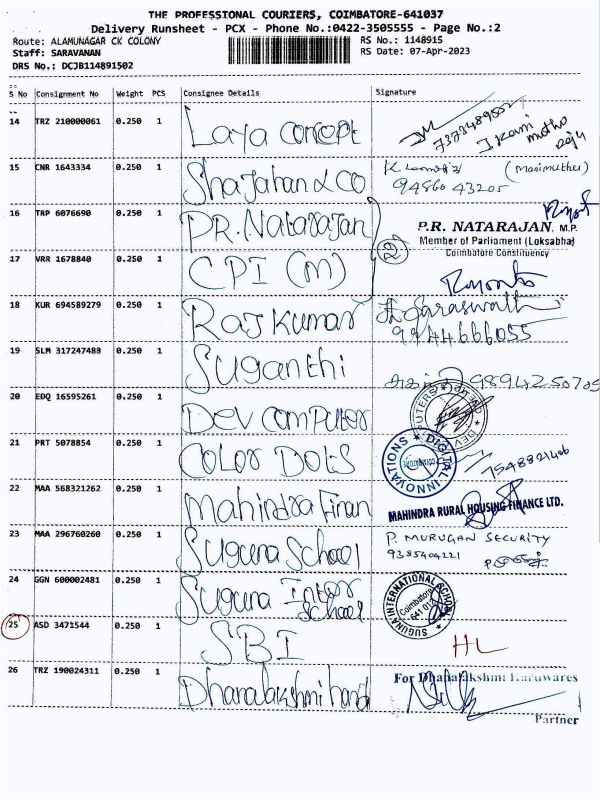 THE PROFESSIONAL COURIERS, COIMBATORE-641037
Delivery Runsheet - PCX - Phone No.:0422-3505555 - Page No.:2
Route: ALAMUNAGAR CK COLONY
RS No.: 1148915
Staff: SARAVANAN
RS Date: 07-Apr-2023
DRS No.: DCJB114891502
S No Consignment No Weight PCS Consignee Details Signature
14 TRZ 210000061 0.250 1 Laya Concept 7373489502
15 CNR 1643334 0.250 1 Shajahan & Co (Marimuthu)
94860 43205
16 TRP 6076690 0.250 1 P.R. Natarajan P.R. NATARAJAN, M.P.
Member of Parliament (Loksabha)
17 VRR 1678840 0.250 1 CPI (M) 2 Coimbatore Constituency
18 KUR 694589279 0.250 1 Raj Kumar Saraswathi
9244666055
19 SLM 317247488 0.250 1 Suganthi 9894250705
20 EDQ 16595261 0.250 1 Dev Computer
21 PRT 5078854 0.250 1 Color Dots DIGITAL INNOVATIONS 7548821406
22 MAA 568321262 0.250 1 Mahindra Finan MAHINDRA RURAL HOUSING FINANCE LTD.
23 MAA 296760260 0.250 1 Suguna School P. MURUGAN SECURITY
9385404221
24 GGN 600002481 0.250 1 Suguna Inter School SUGUNA INTERNATIONAL SCHOOL Coimbatore
25 ASD 3471544 0.250 1 SBI HL
26 TRZ 190024311 0.250 1 Dhanalakshmi hard For Dhanalakshmi Hardwares
Partner